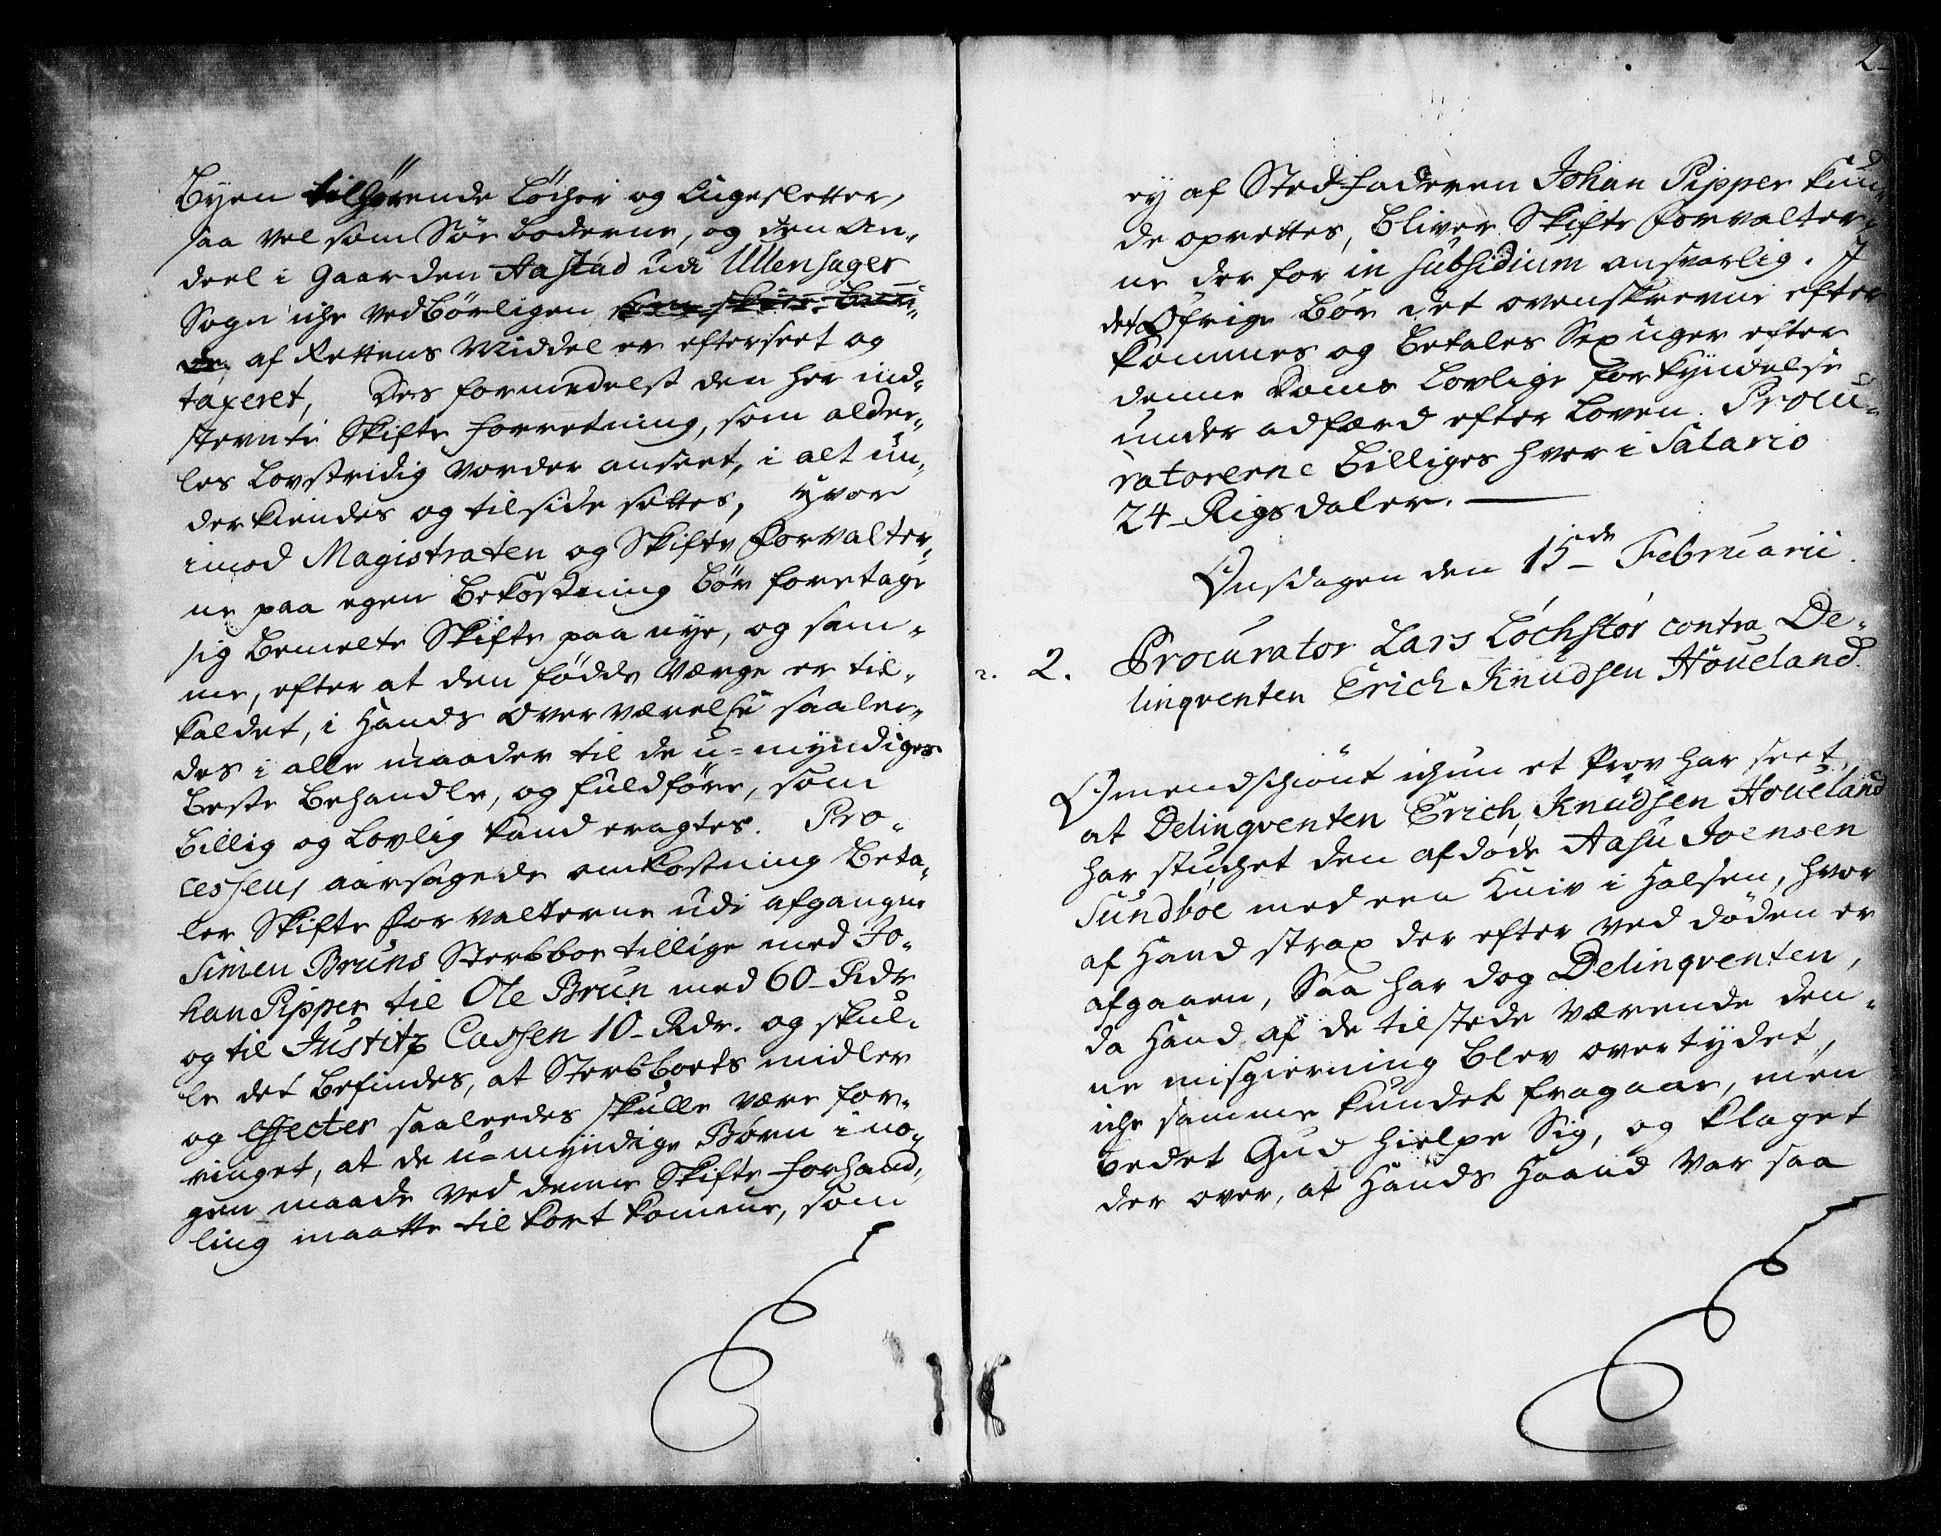 Byen tilhørende Løcher og Engesletter,
saa vel som Søe boderne, og den An-
deel i Gaarden Aastad udi Ullensager
Sogn iche vedbørligen
af Rettens Middel er efterseet og
taxeret, Des formedelst den her ind-
stevnte Skifte Forretning, som alde-
les Lovstridig vorder anseet, i alt un-
derkiendes og tilside settes, Hvor
imod Magistraten og Skifte Forvalter-
ne paa egen Bekostning bør foretage
sig bemelte Skifte paa nye, og sam-
me, efter at den fødde Værge er til-
kaldet, i Hands Overværelse saale-
des i alle maader til de u-myndiges
beste behandle, og fuldføre, som
billig og lovlig kand eragtes. Pro-
cessens aarsagede omkostning beta-
ler Skifte Forvalterne udi afgangne
Simen Bruns Sterbboe tillige med Jo-
han Pipper til Ole Brun med 60 Rdr
og til Justitz Cassen 10 Rdr. og skul-
le det befindes, at Sterbboets midler
og effecter saaledes skulle være for-
ringet, at de u-myndige Børn i no-
gen maade ved denne Skifte forhand-
ling maatte til kort komme, som
2
ey af Stedfaderen Johan Pipper kun-
de oprettes, bliver Skifte Forvalter-
ne der for in subsidium ansvarlig. I
det Øfrige bør det ovenskrevne efter
kommes og betales Sex uger efter
denne Doms lovlige forkyndelse
under adfærd efter Loven. Procu-
ratorerne billiges hver i Salario
24 Rigsdaler.
Onsdagen den 15de Februarii
2. 2. Procurator Lars Lochstør contra De-
linqventen Erich Knudsen Houeland
Omendschiønt ichun et Prov har seet,
at Delinqventen Erich Knudsen Houeland
har stuchet den afdøde Aasu Joensen
Sundboe med een Kniv i Halsen, hvor
af Hand strax der efter ved døden er
afgaaen, Saa har dog Delinqventen,
da Hand af de tilstede værende den-
ne misgierning blev overtydet,
iche samme kundet fragaae, men
bedet Gud hielpe Sig, og klaget
der over, at Hands Haand var saa